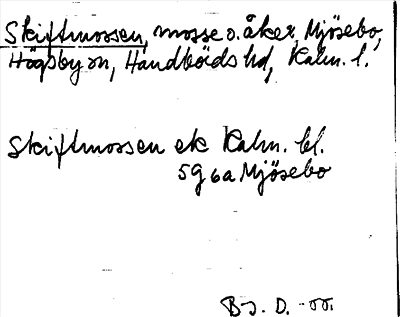 Skiftmossen, mosse o. åker, Mjösebo,
Högsby sn, Handbörds hd, Kalm. l.
Skiftmossen ek Kalm. bl.
5g 6a Mjösebo
B J. D. -55.